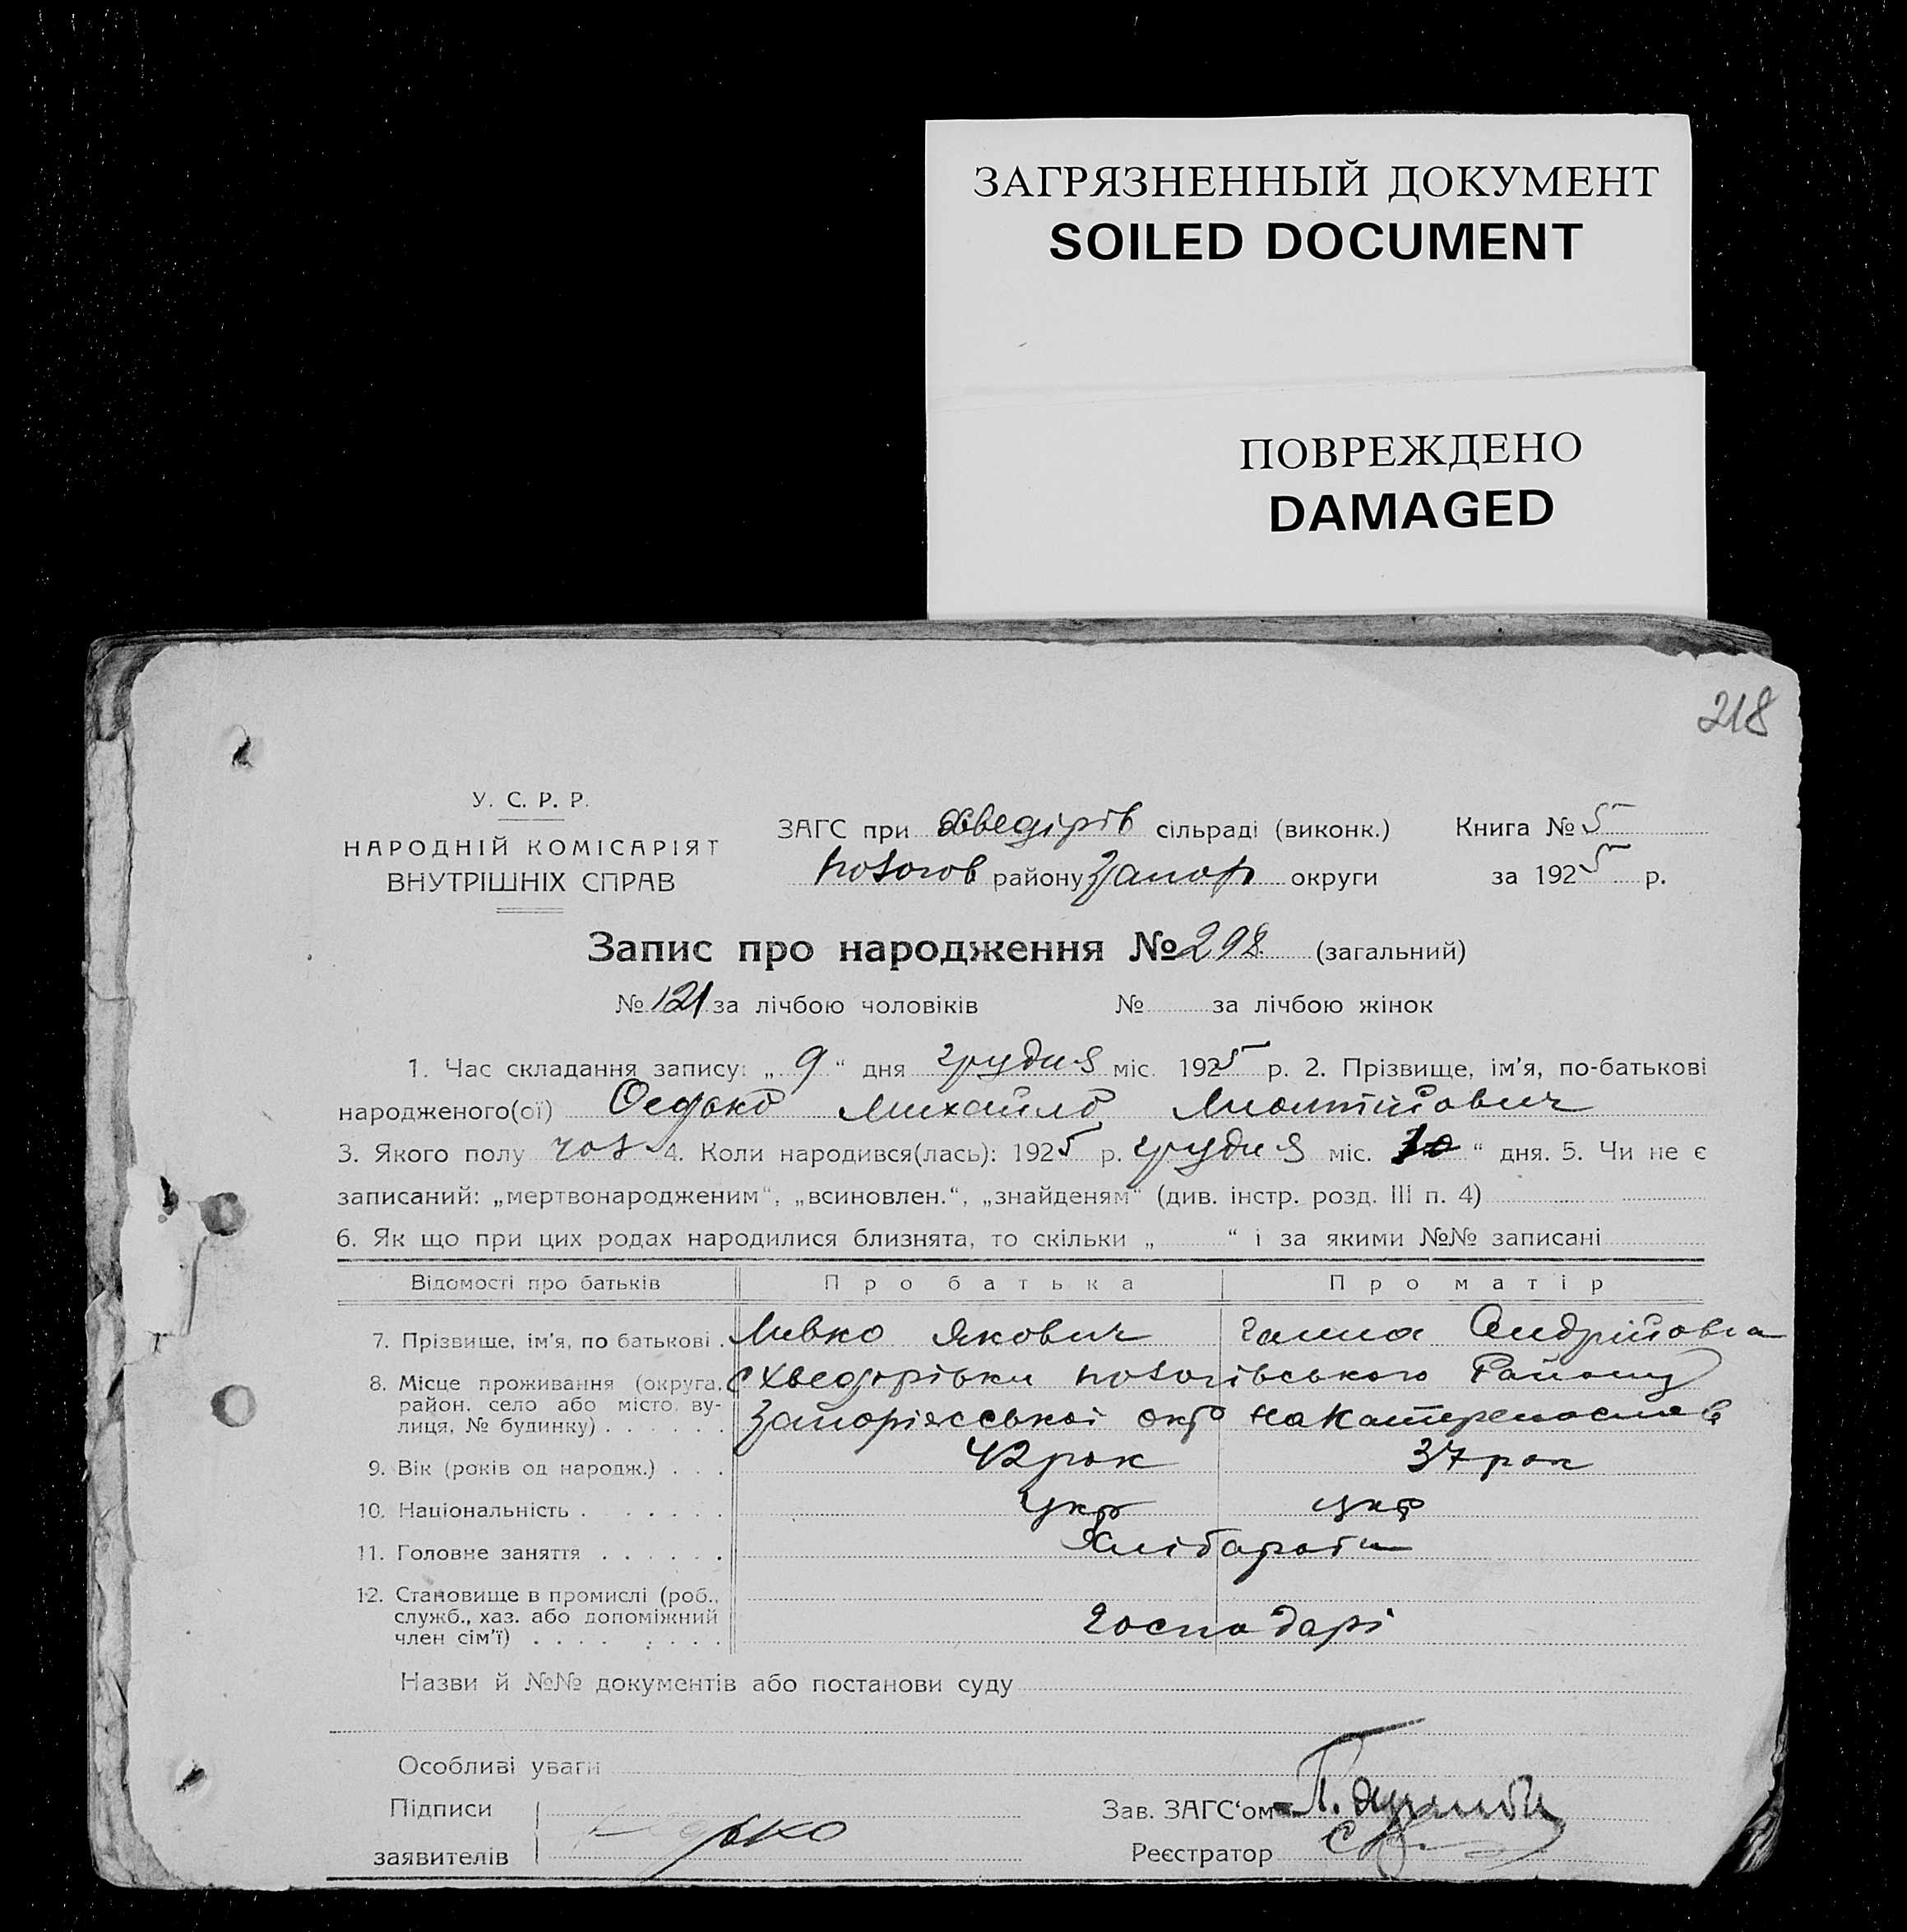 ЗАГРЯЗНЕННЫЙ ДОКУМЕНТ
SOILED DOCUMENT
ПОВРЕЖДЕНО
DAMAGED
218
У. С. Р. Р.
НАРОДНІЙ КОМІСАРІЯТ
ВНУТРІШНІХ СПРАВ
ЗАГС при Хведірів сільраді (виконк.) Книга № 5
району Запор округи за 1925 р.
Запис про народження № 298 (загальний)
№ 121 за лічбою чоловіків № за лічбою жінок
1. Час складання запису: „ 9 “ дня грудня міс. 1925 р. 2. Прізвище, ім'я, по-батькові
народженого(ої) Федько Михайло
3. Якого полу чол 4. Коли народився(лась): 1925 р. грудня міс. “ дня. 5. Чи не є
записаний: „мертвонародженим“, „всиновлен.“, „знайденям“ (див. інстр. розд. III п. 4)
6. Як що при цих родах народилися близнята, то скільки „ “ і за якими №№ записані
Відомості про батьків Про батька Про матір
7. Прізвище, ім'я, по батькові . Левко Якович Ганна Андрійовна
8. Місце проживання (округа, с Хведорівки Району
район, село або місто, ву-
лиця, № будинку) . . . . . . Запоріжської окр на Катеренослав
9. Вік (років од народж.) . . . 42 рок 37 рок
10. Національність . . . . . . . укр укр
11. Головне заняття . . . . . . Хлібароби
12. Становище в промислі (роб.,
служб., хаз. або допоміжний
член сім'ї) . . . . . . . . Господарі
Назви й №№ документів або постанови суду
Особливі уваги
Підписи
заявителів Федько
Зав. ЗАГС'ом
Реєстратор